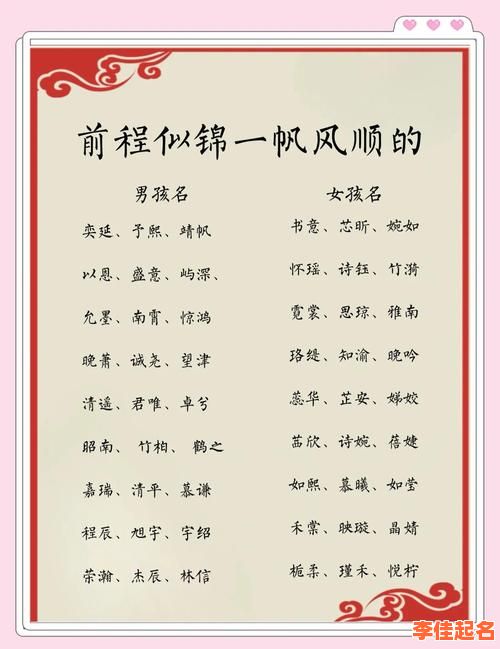 前程似锦一帆风顺的
男孩名
奕延、予熙、靖帆
以恩、盛意、屿深、
允墨、南霄、惊鸿
晚萧、诚尧、望津
清遥、君唯、卓兮
昭南、竹柏、鹤之
嘉瑞、清平、慕谦
程辰、旭宇、宇绍
荣瀚、杰辰、林信
女孩名
书意、芯昕、婉如
怀瑶、诗钰、竹漪
霓裳、思琼、雅南
珞缇、知渝、晚吟
蕊华、芷安、娣姣
茁欣、诗婉、蓓婕
如熙、慕曦、如莹
禾棠、映璇、晶婧
栀柔、瑾禾、悦柠
李佳起名